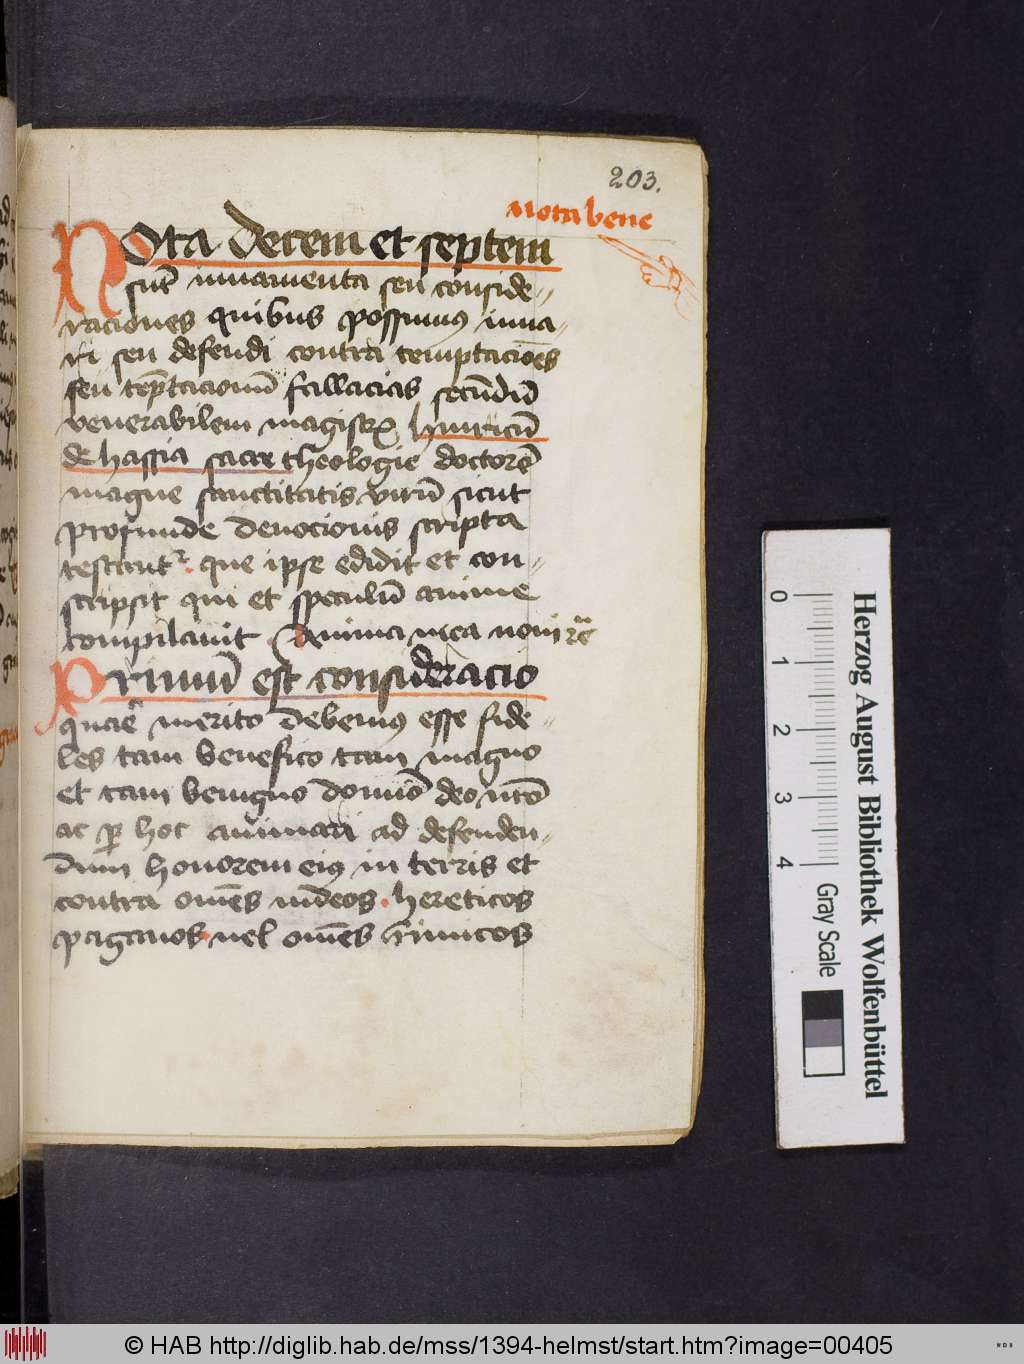 203.
Nota bene
Nota decem et septem
sūt iuuamenta seu conside-
raciones quibus possumus iuua-
ri seu defendi contra temptacio͞es
seu tēptacionū fallacias secūdū
venerabilem magistrꝝ hinricū
de hassia sacre theologie doctorē
magne sanctitatis virū sicut
profunde deuocionis scripta
testant᷑. que ipse edidit et con-
scripsit qui et speculū anime
compilauit. Anima mea
Primū est consideracio
merito debemus esse fide-
les tam benefico tam magno
et tam benigno domīo deo nrō
ac ꝑ hoc animari ad defenden-
dum honorem eius in terris et
contra om̄es iudeos. hereticos
paganos. uel om̄es
Herzog August Bibliothek Wolfenbüttel
0 1 2 3 4 Gray Scale
© HAB http://diglib.hab.de/mss/1394-helmst/start.htm?image=00405